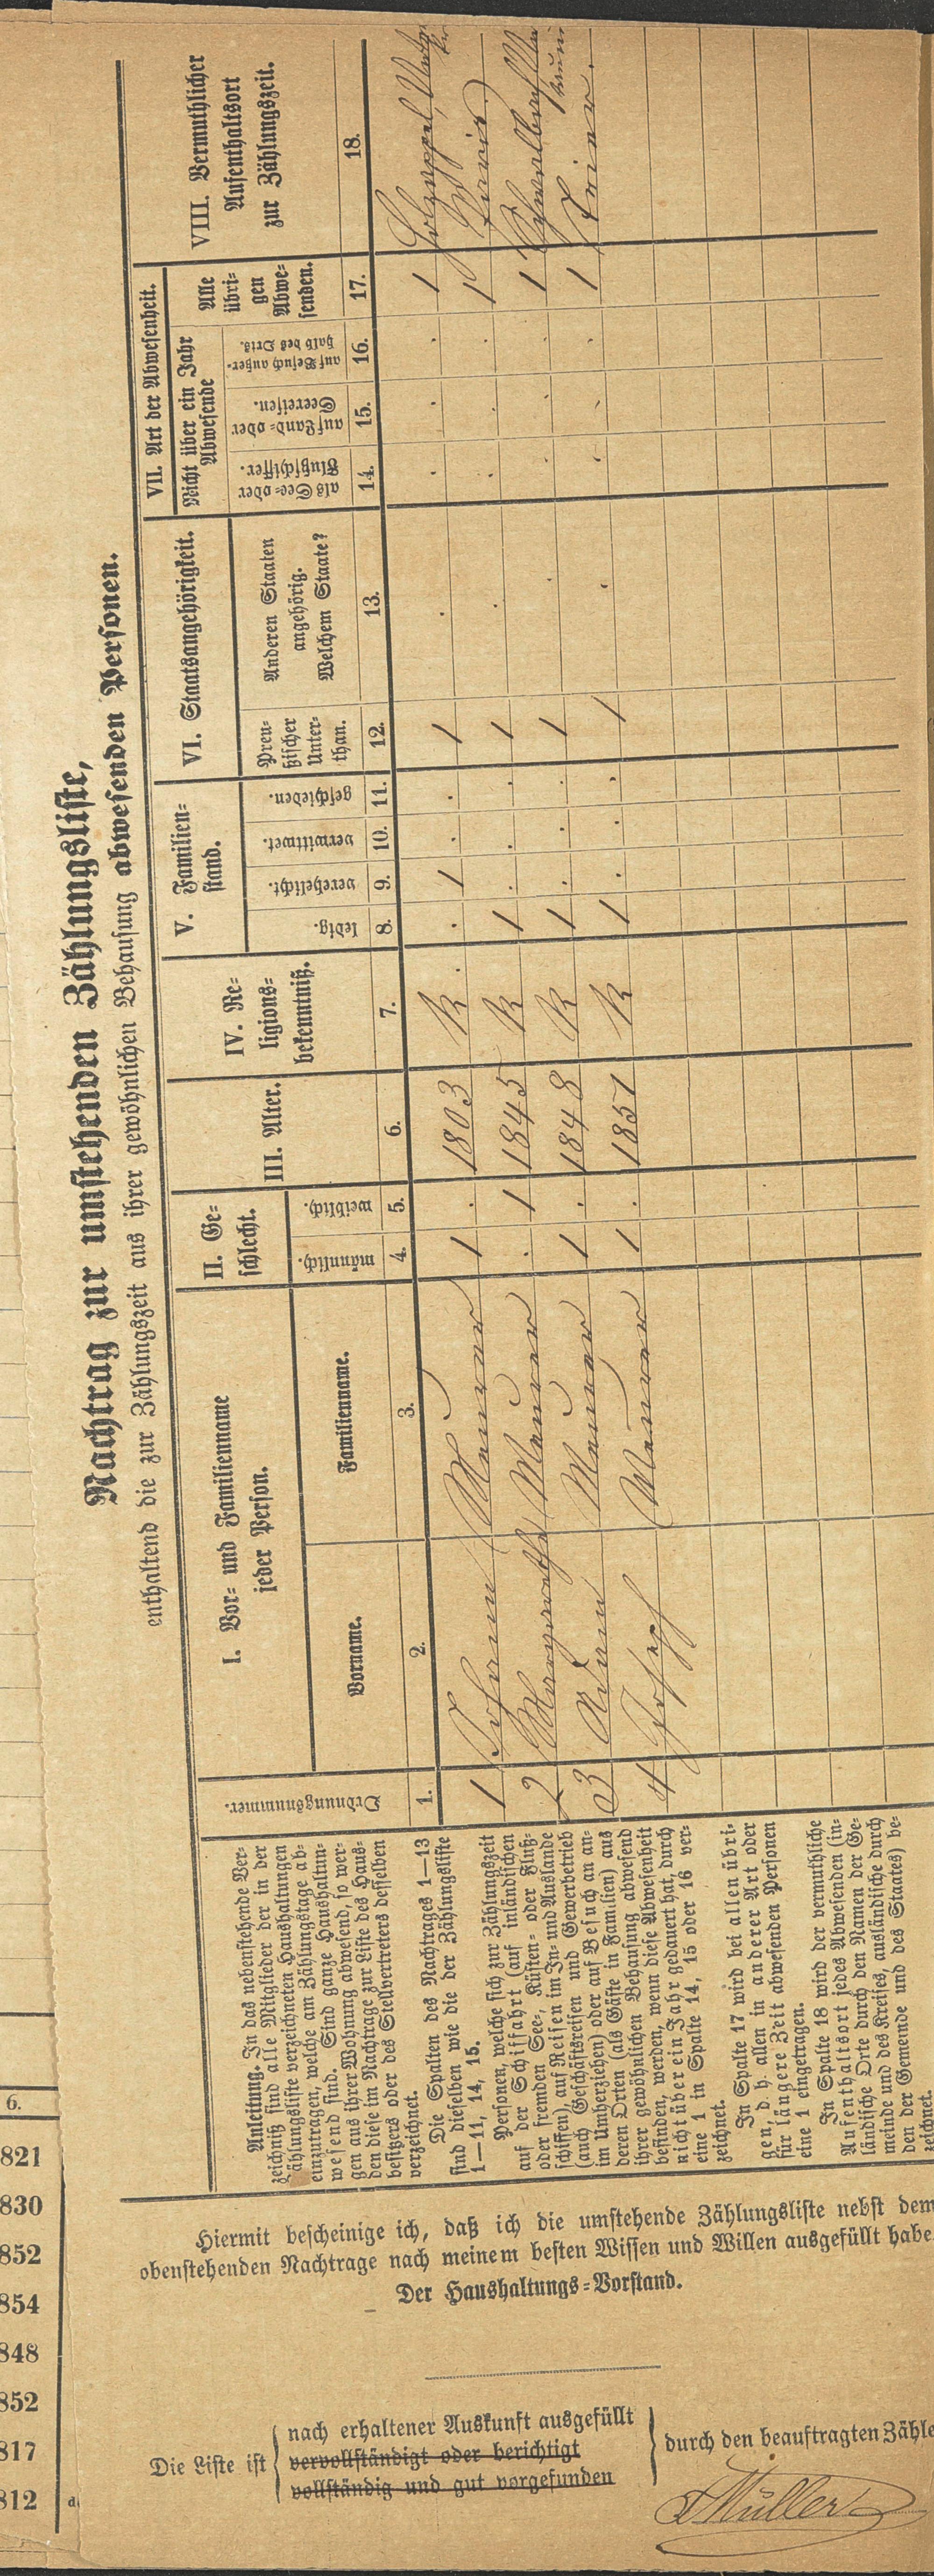 Nachtrag zur umstehenden Zählungsliste,
enthaltend die zur Zählungszeit aus ihrer gewöhnlichen Behausung abwesenden Personen.
Anleitung. In das nebenstehende Ver-
zeichniß sind alle Mitglieder der in der
Zählungsliste verzeichneten Haushaltungen
einzutragen, welche am Zählungstage ab-
wesend sind. Sind ganze Haushaltun-
gen aus ihrer Wohnung abwesend, so wer-
den diese im Nachtrage zur Liste des Haus-
besitzers oder des Stellvertreters desselben
verzeichnet.
Die Spalten des Nachtrages 1—13
sind dieselben wie die der Zählungsliste
1—11, 14, 15.
Personen, welche sich zur Zählungszeit
auf der Schiffahrt (auf inländischen
oder fremden See-, Küsten- oder Fluß-
schiffen), auf Reisen im In- und Auslande
(auch Geschäftsreisen und Gewerbetrieb
im Umherziehen) oder auf Besuch an an-
deren Orten (als Gäste in Familien) aus
ihrer gewöhnlichen Behausung abwesend
befinden, werden, wenn diese Abwesenheit
nicht über ein Jahr gedauert hat, durch
eine 1 in Spalte 14, 15 oder 16 ver-
zeichnet.
In Spalte 17 wird bei allen übri-
gen, d. h. allen in anderer Art oder
für längere Zeit abwesenden Personen
eine 1 eingetragen.
In Spalte 18 wird der vermuthliche
Aufenthaltsort jedes Abwesenden (in-
ländische Orte durch den Namen der Ge-
meinde und des Kreises, ausländische durch
den der Gemeinde und des Staates) be-
zeichnet.
Ordnungsnummer.
I. Vor- und Familienname
jeder Person.
Vorname.
Familienname.
II. Ge-
schlecht.
männlich.
weiblich.
III. Alter.
IV. Re-
ligions-
bekenntniß.
V. Familien-
stand.
ledig.
verehelicht.
verwittwet.
geschieden.
VI. Staatsangehörigkeit.
Preu-
ßischer
Unter-
than.
Anderen Staaten
angehörig.
Welchem Staate?
VII. Art der Abwesenheit.
Nicht über ein Jahr
Abwesende
als See- oder
Flußschiffer.
auf Land- oder
Seereisen.
auf Besuch außer-
halb des Orts.
Alle
übri-
gen
Abwe-
senden.
VIII. Vermuthlicher
Aufenthaltsort
zur Zählungszeit.
1. 2. 3. 4. 5. 6. 7. 8. 9. 10. 11. 12. 13. 14. 15. 16. 17. 18.
1 Johann Maurer 1 . 1803 K . 1 . . 1 . . . . 1 Holzappel
2 Margarethe Maurer . 1 1845 K 1 . . . 1 . . . . 1 Paris
3 Adam Maurer 1 . 1848 K 1 . . . 1 . . . . 1
4 Joseph Maurer 1 . 1851 K 1 . . . 1 . . . . 1 Trier.
Hiermit bescheinige ich, daß ich die umstehende Zählungsliste nebst dem
obenstehenden Nachtrage nach meinem besten Wissen und Willen ausgefüllt habe.
Der Haushaltungs-Vorstand.
Die Liste ist
nach erhaltener Auskunft ausgefüllt
vervollständigt oder berichtigt
vollständig und gut vorgefunden
durch den beauftragten Zähle
Müller
6.
821
830
852
854
848
852
817
812